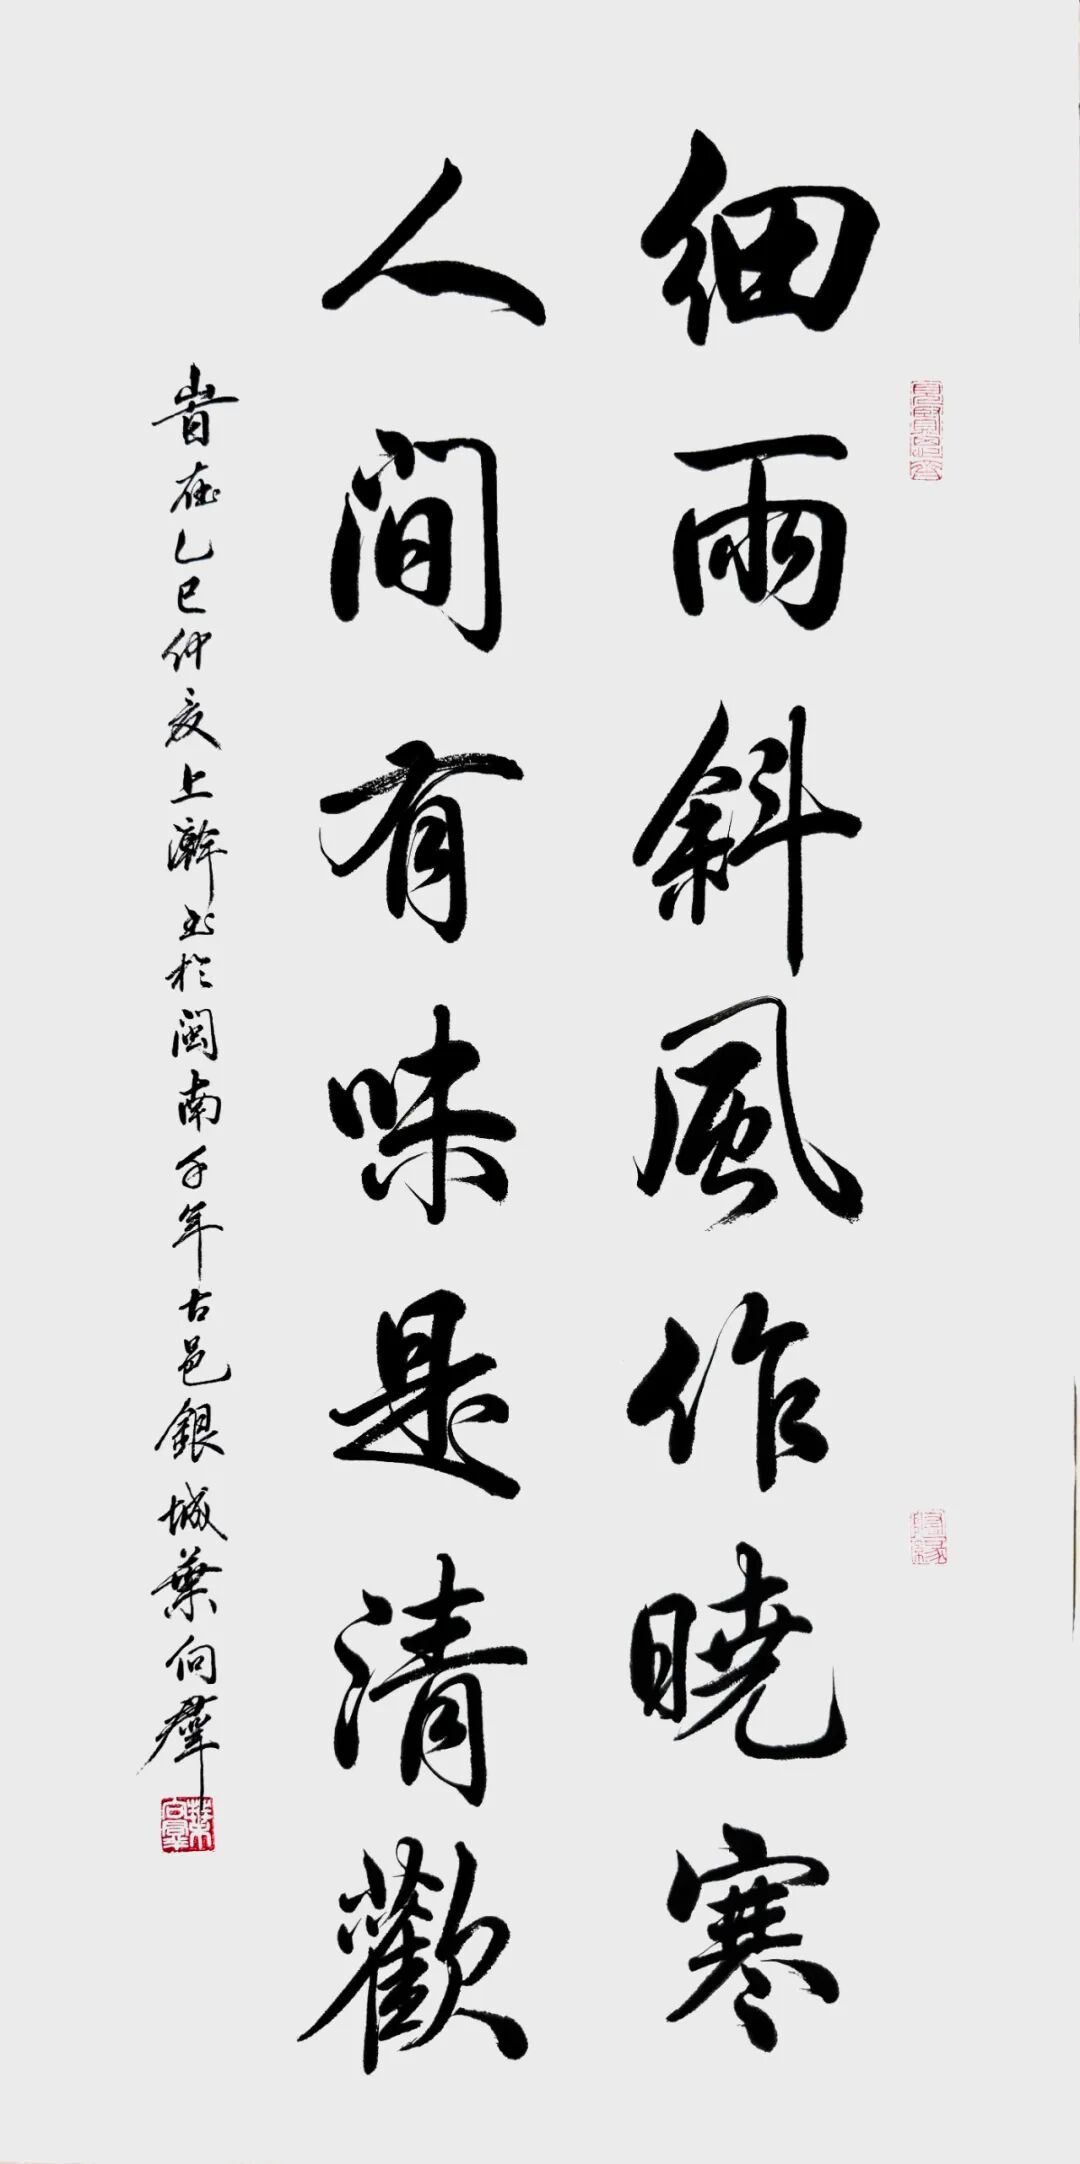 細雨斜風作曉寒
人間有味是清歡
旹在乙巳仲夏上澣書於閩南千年古邑銀城葉向群
葉向群